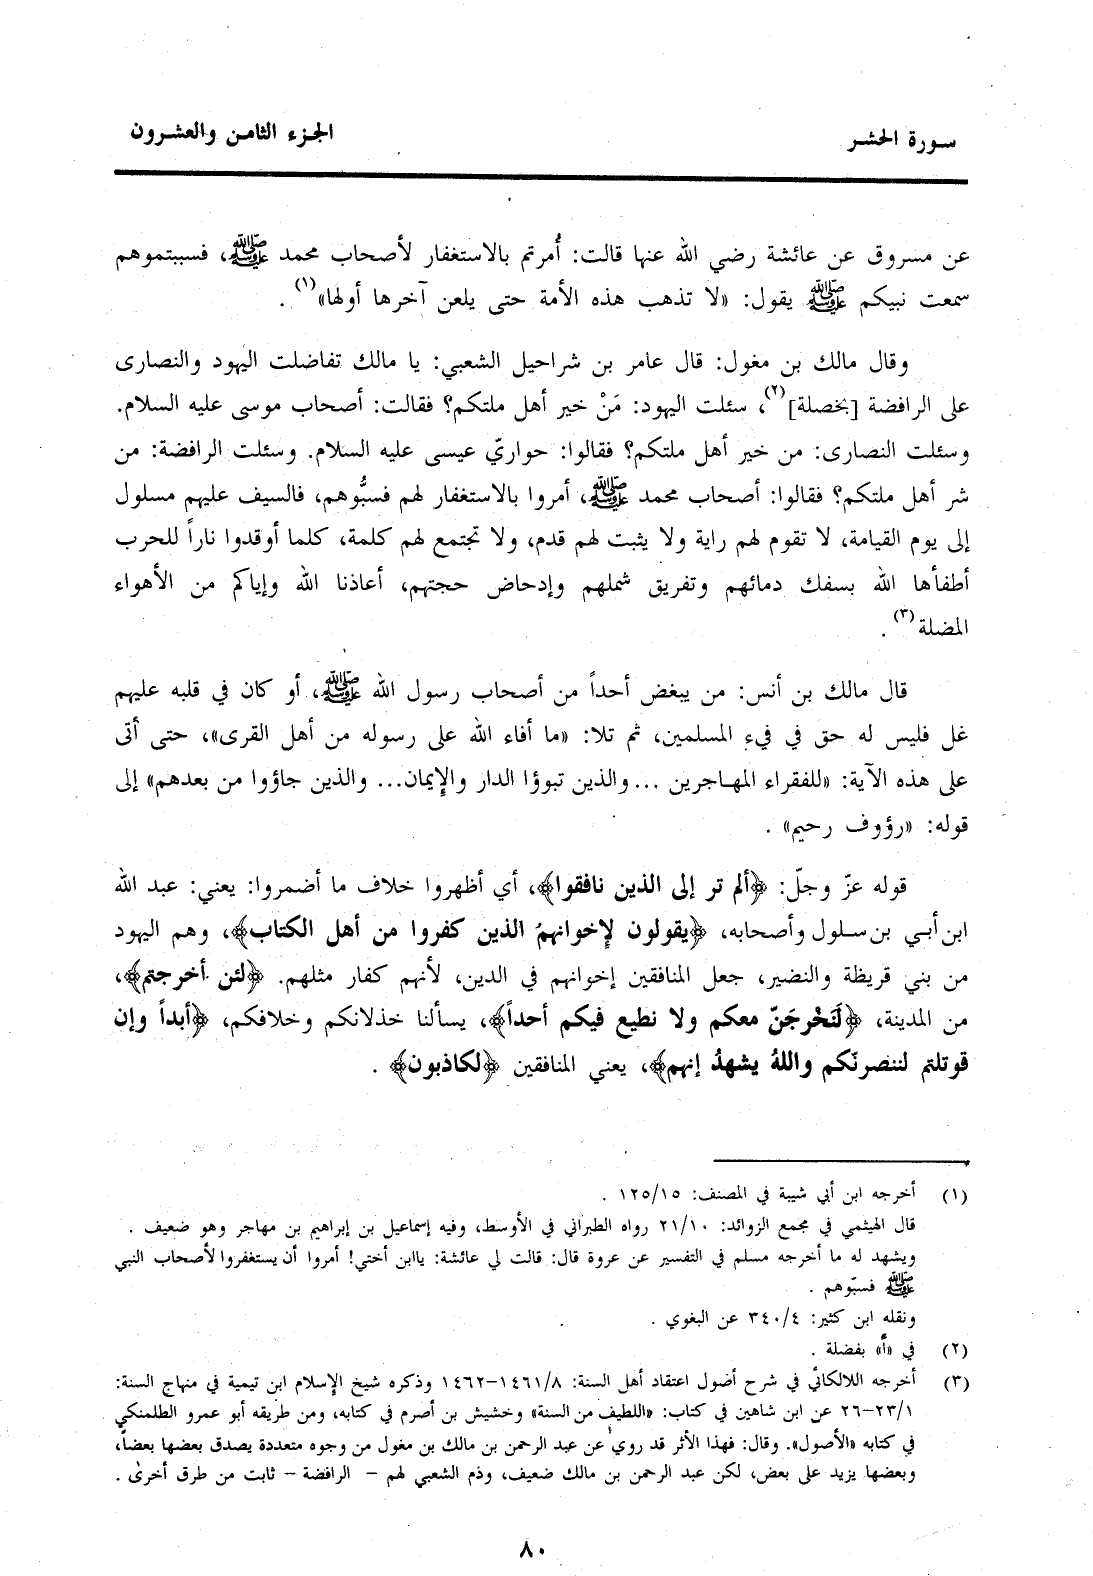 سورة الحشر
الجزء الثامن والعشرون
عن مسروق عن عائشة رضي الله عنها قالت: أُمرتم بالاستغفار لأصحاب محمد ﷺ، فسببتموهم
سمعت نبيكم ﷺ يقول: «لا تذهب هذه الأمة حتى يلعن آخرها أولها»(١) .
وقال مالك بن مغول: قال عامر بن شراحيل الشعبي: يا مالك تفاضلت اليهود والنصارى
على الرافضة [بخصلة](٢)، سئلت اليهود: مَنْ خير أهل ملتكم؟ فقالت: أصحاب موسى عليه السلام.
وسئلت النصارى: من خير أهل ملتكم؟ فقالوا: حواريّ عيسى عليه السلام. وسئلت الرافضة: من
شر أهل ملتكم؟ فقالوا: أصحاب محمد ﷺ، أمروا بالاستغفار لهم فسبُّوهم، فالسيف عليهم مسلول
إلى يوم القيامة، لا تقوم لهم راية ولا يثبت لهم قدم، ولا تجتمع لهم كلمة، كلما أوقدوا ناراً للحرب
أطفأها الله بسفك دمائهم وتفريق شملهم وإدحاض حجتهم، أعاذنا الله وإياكم من الأهواء
المضلة(٣) .
قال مالك بن أنس: من يبغض أحداً من أصحاب رسول الله ﷺ، أو كان في قلبه عليهم
غل فليس له حق في فيء المسلمين، ثم تلا: «ما أفاء الله على رسوله من أهل القرى»، حتى أتى
على هذه الآية: «للفقراء المهاجرين ... والذين تبوؤا الدار والإيمان... والذين جاؤوا من بعدهم» إلى
قوله: «رؤوف رحيم» .
قوله عزّ وجلّ: ﴿ألم تر إلى الذين نافقوا﴾، أي أظهروا خلاف ما أضمروا: يعني: عبد الله
ابن أبي بن سلول وأصحابه، ﴿يقولون لإخوانهمُ الذين كفروا من أهل الكتاب﴾، وهم اليهود
من بني قريظة والنضير، جعل المنافقين إخوانهم في الدين، لأنهم كفار مثلهم. ﴿لئن أخرجتم﴾،
من المدينة، ﴿لَنَخْرجَنّ معكم ولا نطيع فيكم أحداً﴾، يسألنا خذلانكم وخلافكم، ﴿أبداً وإن
قوتلتم لننصرنّكم واللهُ يشهدُ إنهم﴾، يعني المنافقين ﴿لكاذبون﴾ .
(١) أخرجه ابن أبي شيبة في المصنف: ١٢٥/١٥ .
قال الهيثمي في مجمع الزوائد: ٢١/١٠ رواه الطبراني في الأوسط، وفيه إسماعيل بن إبراهيم بن مهاجر وهو ضعيف .
ويشهد له ما أخرجه مسلم في التفسير عن عروة قال: قالت لي عائشة: ياابن أختي! أمروا أن يستغفروا لأصحاب النبي
ﷺ فسبّوهم .
ونقله ابن كثير: ٣٤٠/٤ عن البغوي .
(٢) في «أ» بفضلة .
(٣) أخرجه اللالكائي في شرح أصول اعتقاد أهل السنة: ١٤٦١/٨–١٤٦٢ وذكره شيخ الإسلام ابن تيمية في منهاج السنة:
٢٣/١–٢٦ عن ابن شاهين في كتاب: «اللطيف من السنة» وخشيش بن أصرم في كتابه، ومن طريقه أبو عمرو الطلمنكي
في كتابه «الأصول». وقال: فهذا الأثر قد روي عن عبد الرحمن بن مالك بن مغول من وجوه متعددة يصدق بعضها بعضاً،
وبعضها يزيد على بعض، لكن عبد الرحمن بن مالك ضعيف، وذم الشعبي لهم – الرافضة – ثابت من طرق أخرى .
٨٠